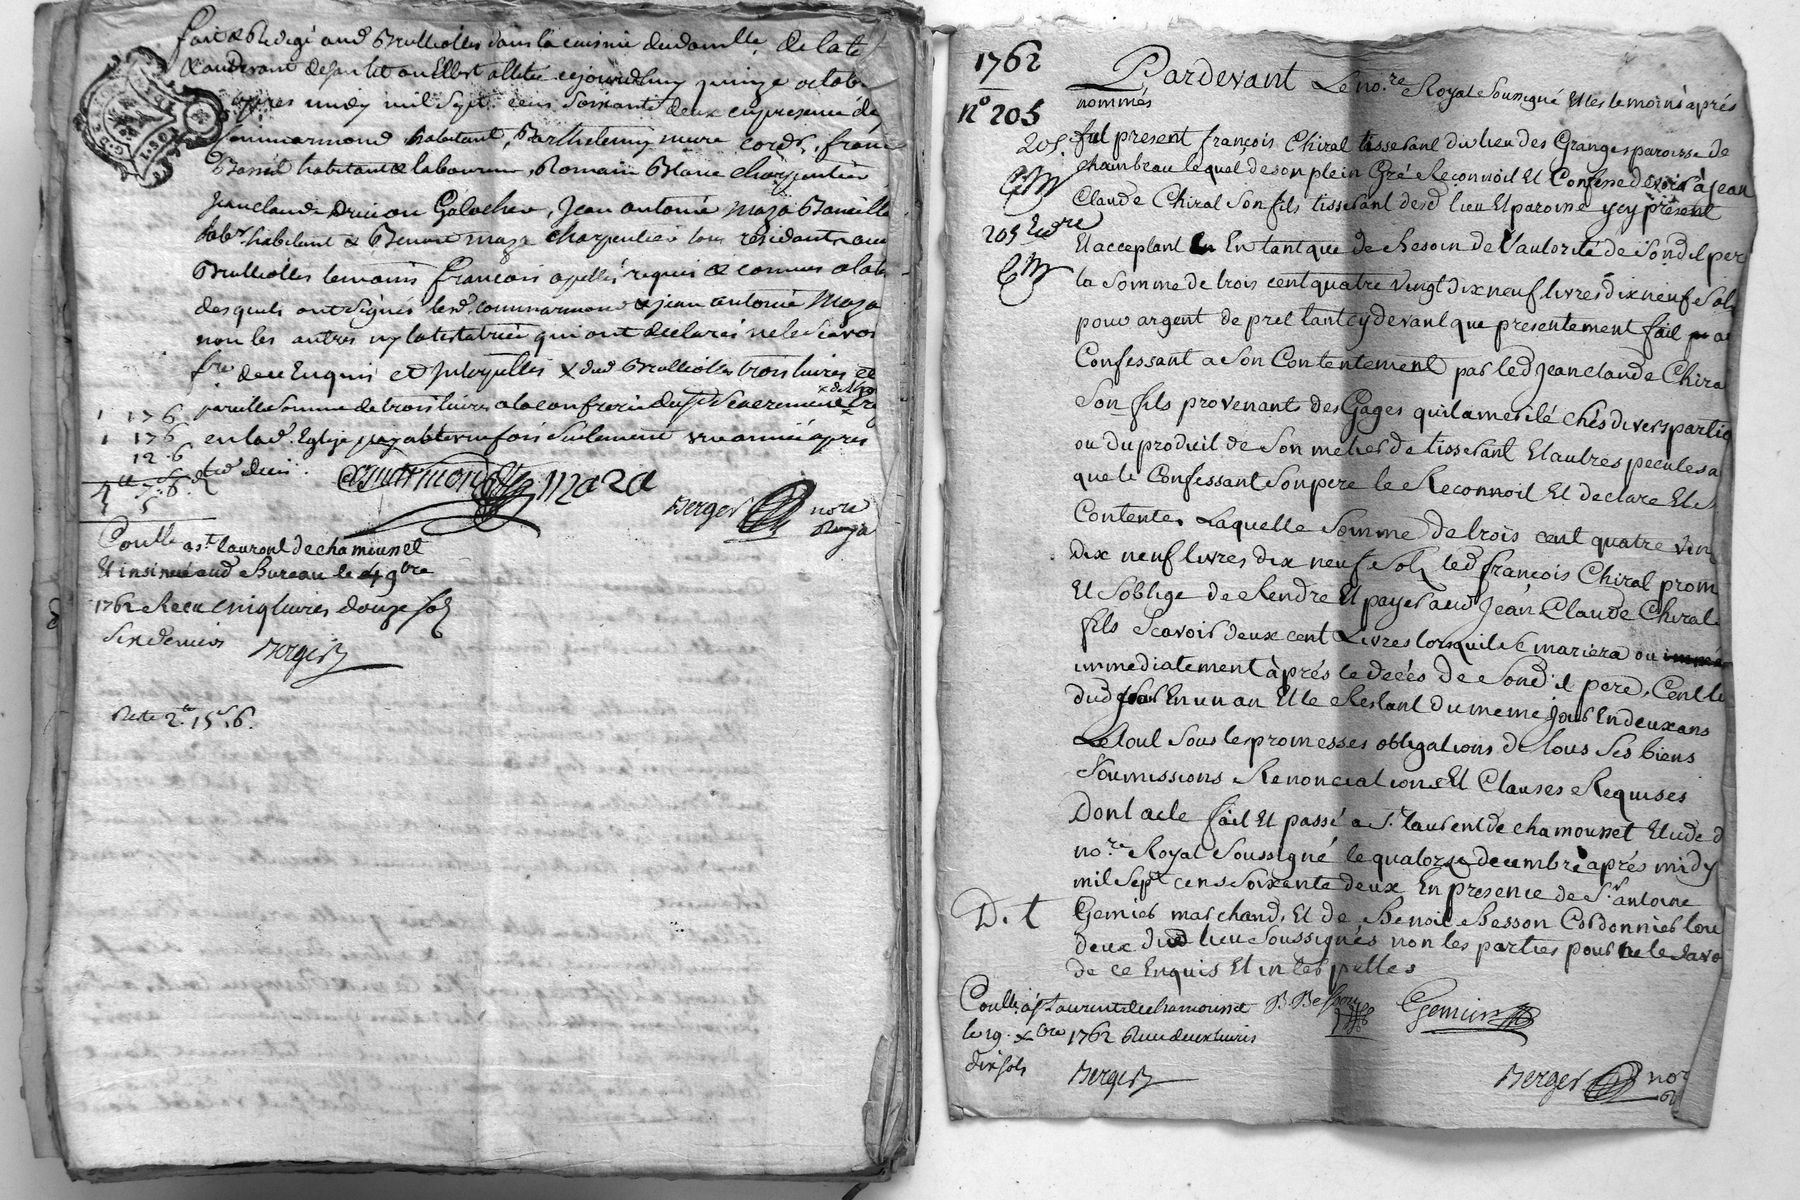 fait & Redigé aud Brullioles dans la cuisine du domille de la te
& audevant de son lit ou Elle est allitée cejourdhuy quinze octob
apres midy mil Sept cens Soixante deux en presence de
Commarmond habitant, Barthelemy mure cord.r, fran
habitant & laboureur, Romain Blanc charpentier
Jean claude Galochier, Jean antoine Maza
lab.r habitant & Benoit maza charpentier tous residants au
Brullioles temoins françois apellés requis & connus a la te
desquels ont Signés led. Commarmond & jean antoine Maza
non les autres ny la testatrice qui ont declarés ne le Scavoir
de ce Enquis et Interpellés x dud Brullioles trois livres et
pareille Somme de trois livres a la confrerie du St Sacrement
en lad. Eglise payable une fois Seulement une année apres
Son deces.
1 176
1 176
12.6
Commarmond Maza
Berger nore
Royal
Coulle a st laurent de chamousset
Et insinué aud Bureau le 4 9bre
1762 Receu cinq livres douze sols
Six deniers Berger
Reste 2lt 15s 6.
1762
n° 205
Pardevant Le no.re Royal Soussigné Et les temoins après
nommés
205.
fut present françois Chiral tisserant du lieu des Granges paroisse de
chambeau lequel de son plein Gré Reconnoit Et Confesse devoir à Jean
Claude Chiral Son fils tisserant desd lieu Et paroisse ycy present
205
Et acceptant En tant que de Besoin de L'autorité de Sond. per
la Somme de trois cent quatre Vingt dix neuf livres dix neuf Sols
pour argent de pret tant cy devant que presentement fait
Confessant a Son Contentement par led Jean claude Chira
Son fils provenants des Gages quil a merité chés divers partic
ou du produit de Son metier de tisserant Et autres pecules a
que le Confessant Son pere le Reconnoit Et declare Et
Contente. Laquelle Somme de trois cent quatre Vin
dix neuf livres dix neuf Sols led françois Chiral prom
Et Soblige de Rendre Et payer aud Jean Claude Chiral
fils Scavoir deux cent Livres lorsquil Se mariera ou
immediatement après le decés de Sond. pere, Cent li
dud Jour En un an Et le Restant du meme Jour En deux ans
Le tout Sous les promesses obligations de tous Ses biens
Soumissions Renonciations Et Clauses Requises
Dont acte fait Et passé a St laurent de chamousset Etude d
no.re Royal Soussigné le quatorze decembre après midy
mil Sept cens soixante deux En presence de Sr antoine
D. t
Gemier marchand, Et de Benoit Besson Cordonnier tou
deux dud lieu Soussignés non les parties pour ne le Savo
de ce Enquis Et interpellés
Coulle a st laurent de chamousset B. Besson Gemier
le 19. xbre 1762 Receu deux livres
dix sols Berger Berger no.r